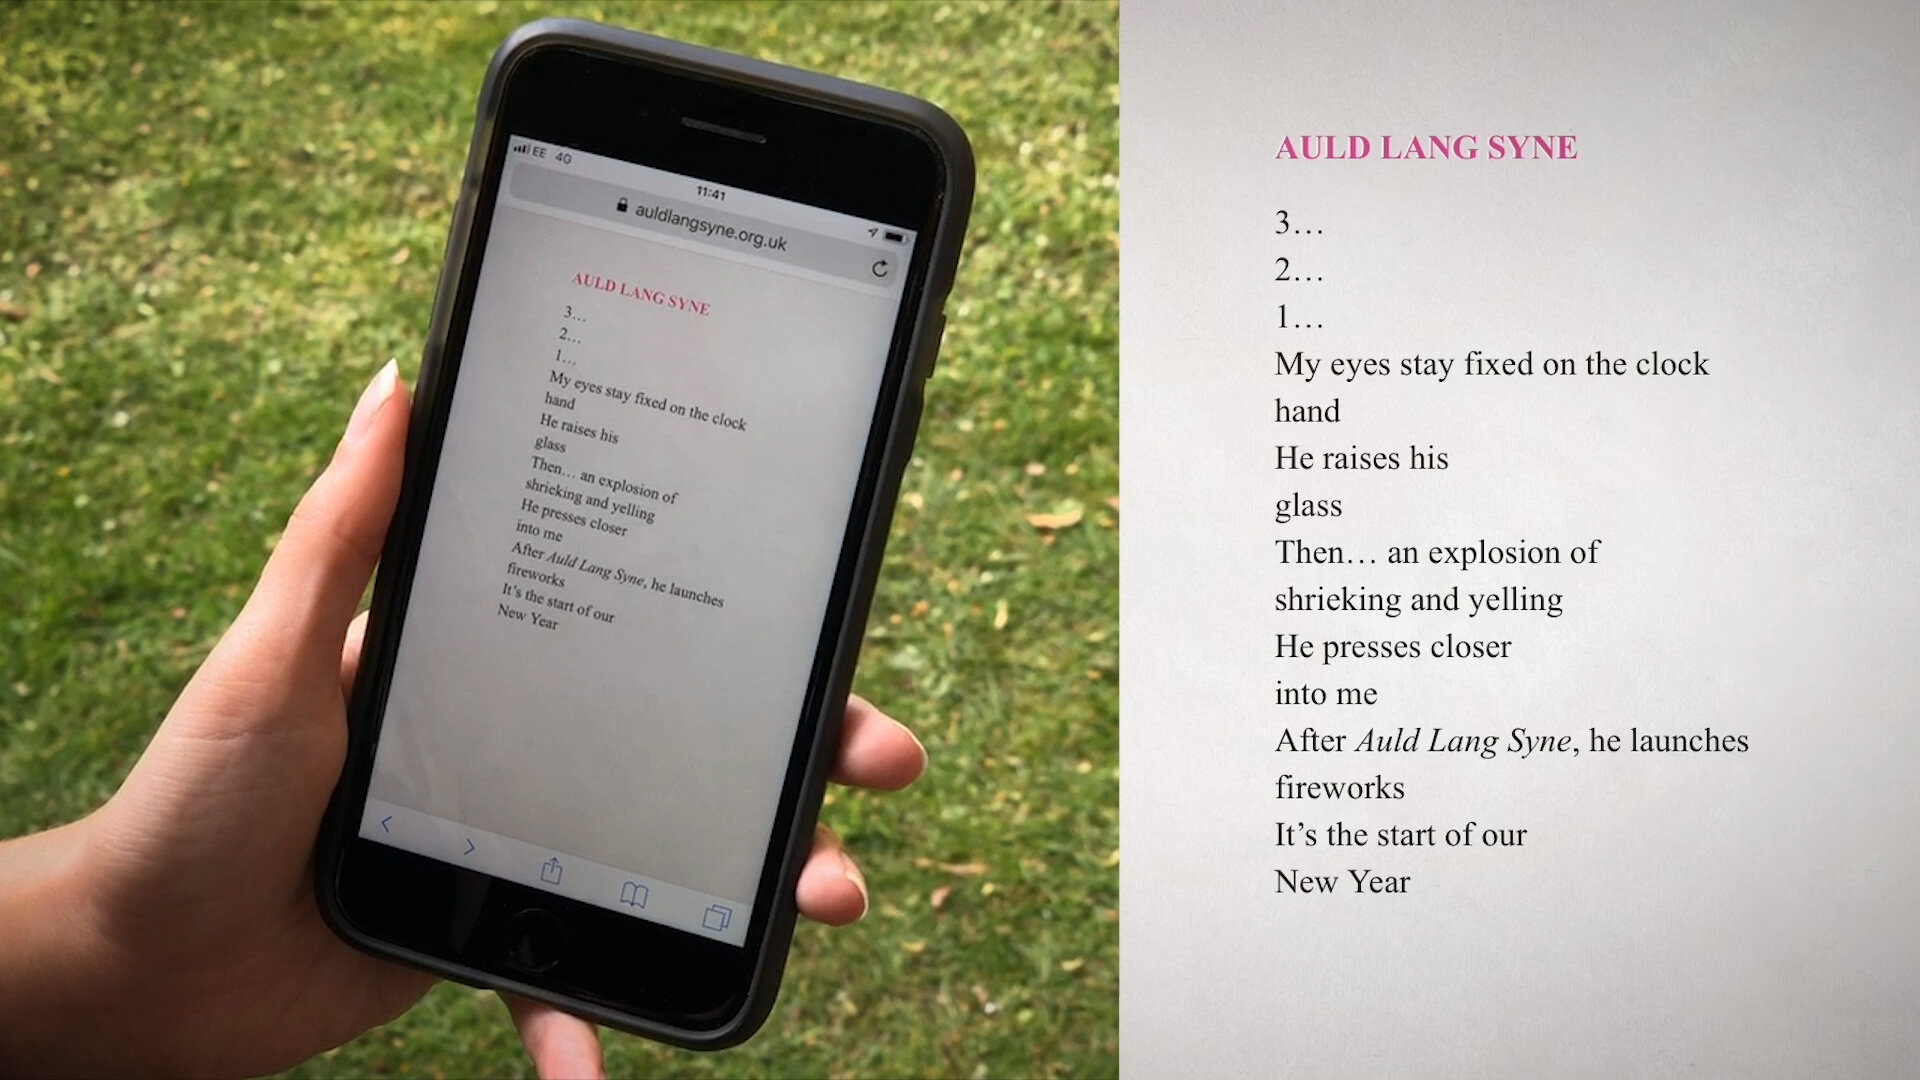 EE 4G
11:41
auldlangsyne.org.uk
AULD LANG SYNE
3…
2…
1…
My eyes stay fixed on the clock
hand
He raises his
glass
Then… an explosion of
shrieking and yelling
He presses closer
into me
After Auld Lang Syne, he launches
fireworks
It’s the start of our
New Year
AULD LANG SYNE
3…
2…
1…
My eyes stay fixed on the clock
hand
He raises his
glass
Then… an explosion of
shrieking and yelling
He presses closer
into me
After Auld Lang Syne, he launches
fireworks
It’s the start of our
New Year